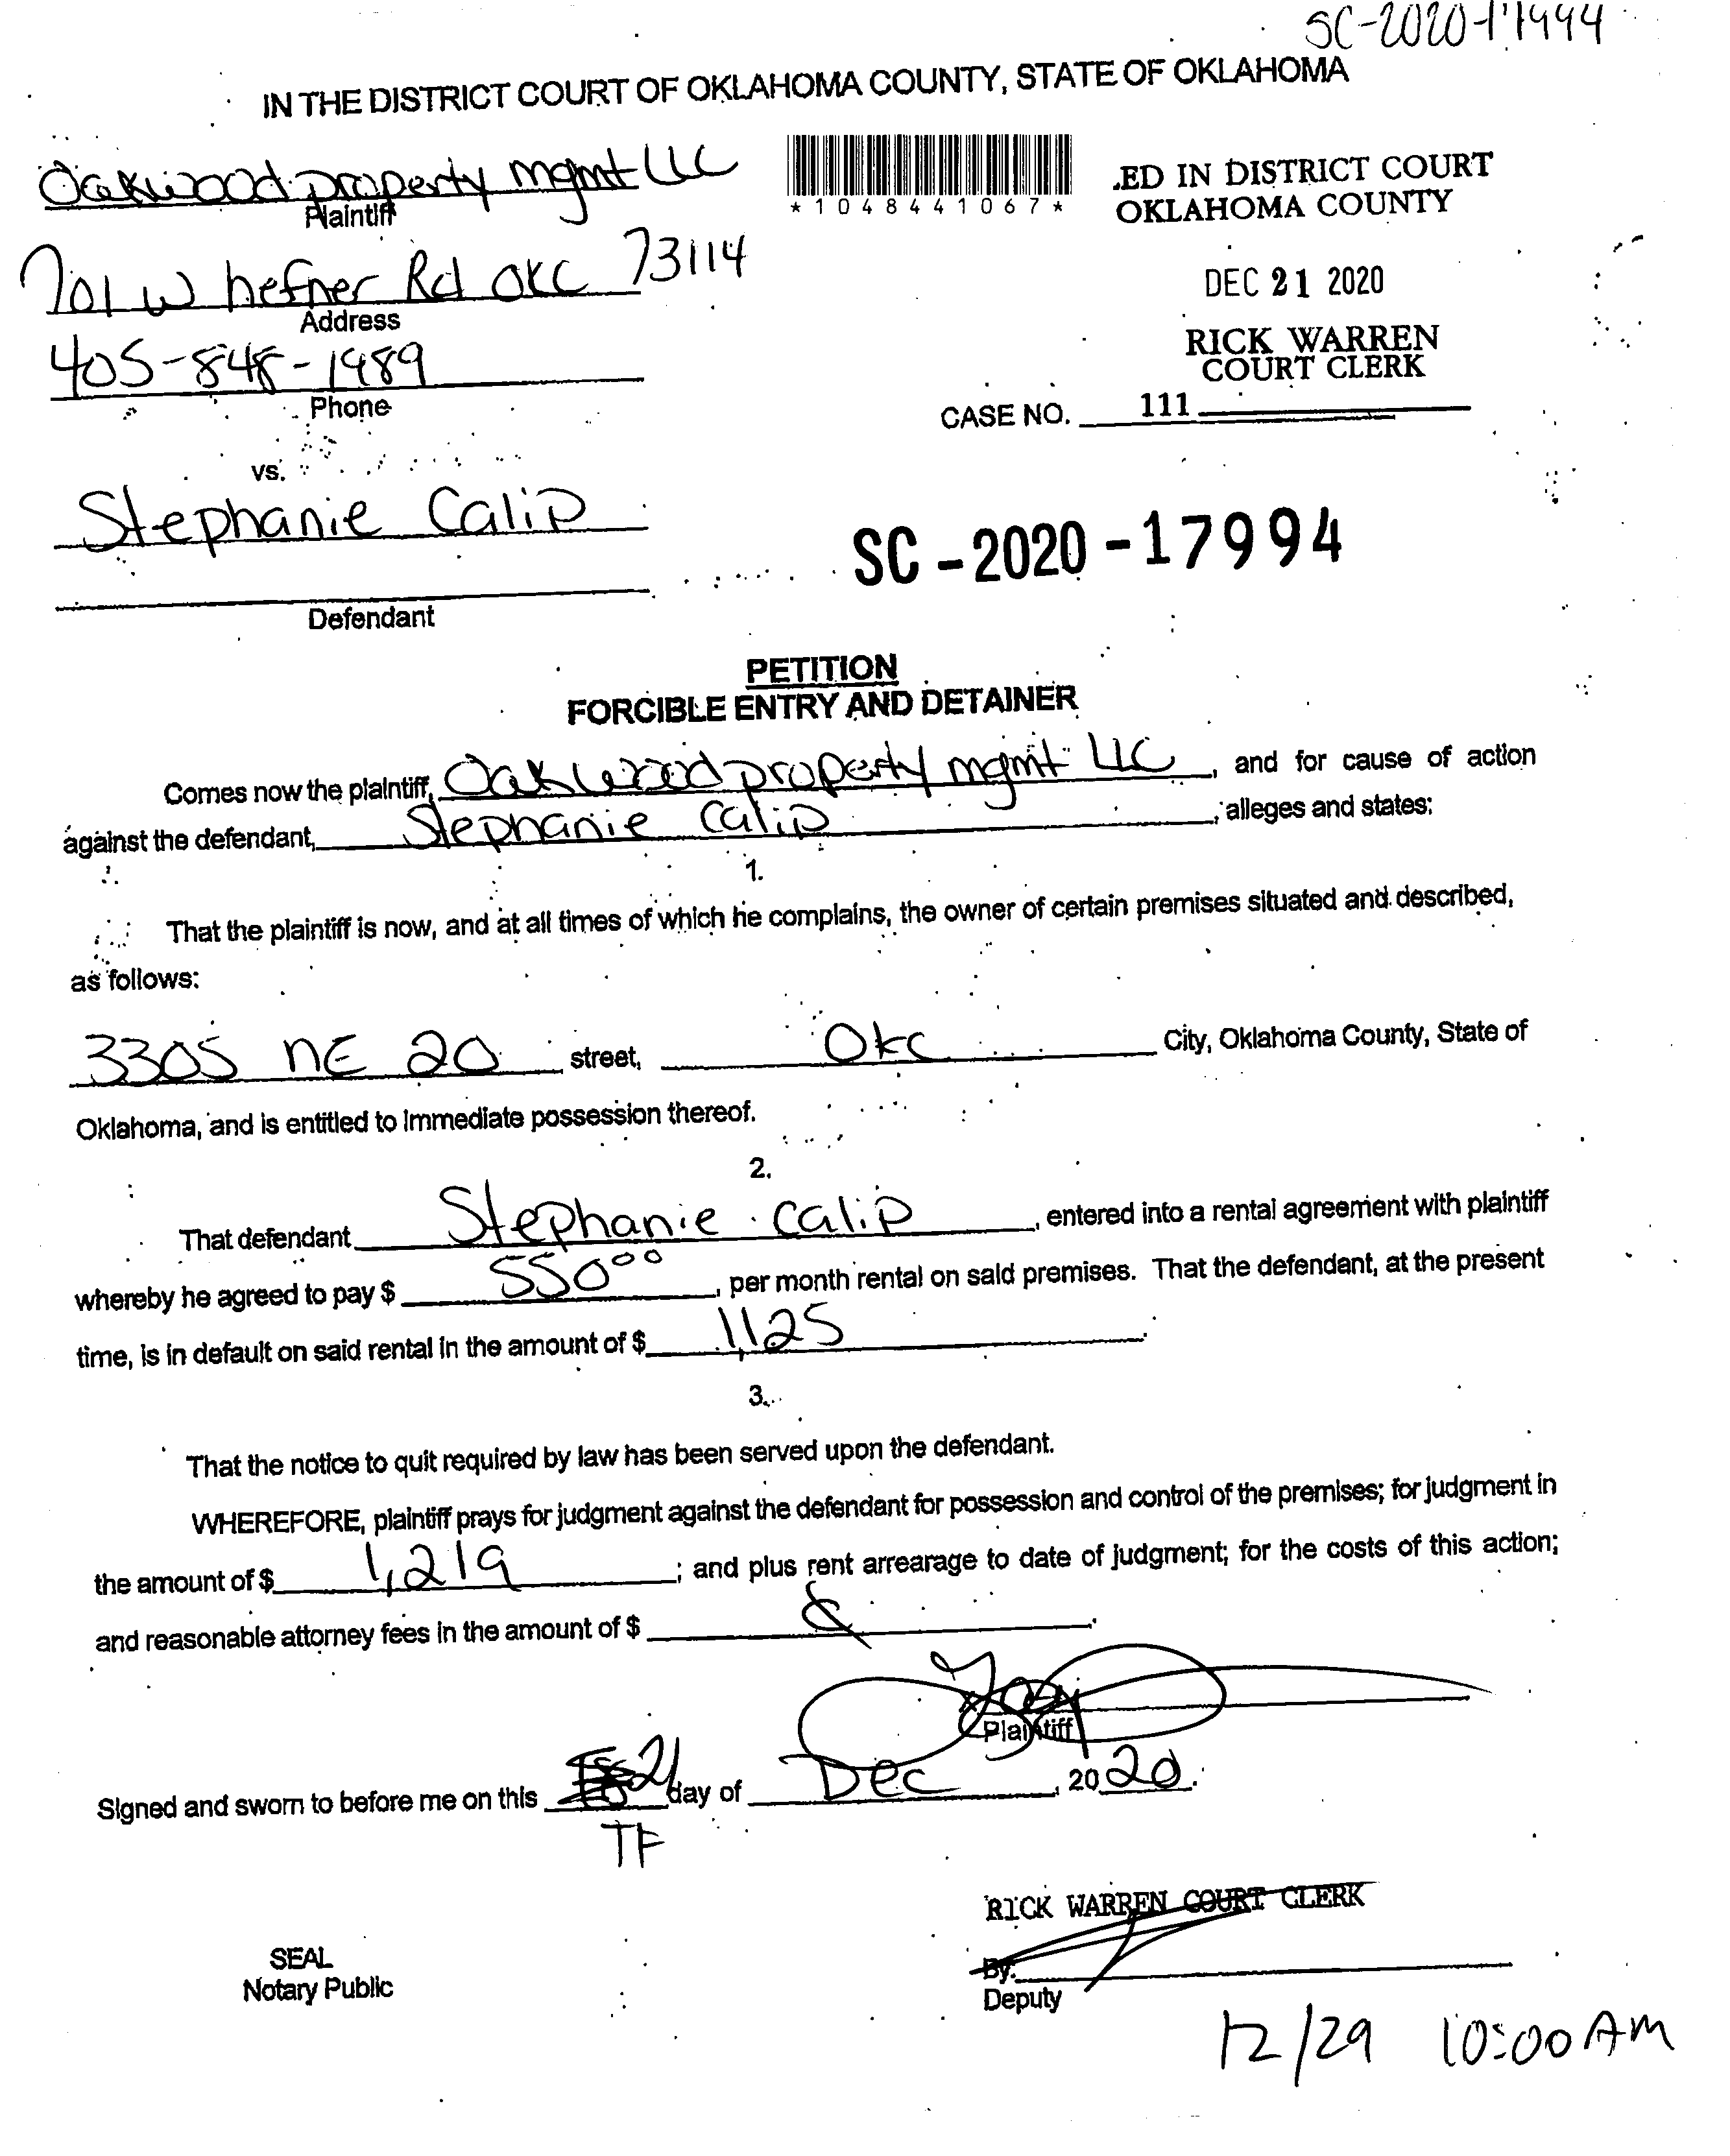 SC-2020-17994
IN THE DISTRICT COURT OF OKLAHOMA COUNTY, STATE OF OKLAHOMA
Oakwood property mgmt LLC
Plaintiff
*1048441067*
.ED IN DISTRICT COURT
OKLAHOMA COUNTY
701 W hefner Rd OKC 73114
Address
DEC 21 2020
405-848-1989
Phone
RICK WARREN
COURT CLERK
CASE NO. 111
vs.
Stephanie Calip
Defendant
SC-2020-17994
PETITION
FORCIBLE ENTRY AND DETAINER
Comes now the plaintiff, Oakwood property mgmt LLC, and for cause of action
against the defendant, Stephanie Calip, alleges and states:
1.
That the plaintiff is now, and at all times of which he complains, the owner of certain premises situated and described,
as follows:
3305 NE 20 street, OKC City, Oklahoma County, State of
Oklahoma, and is entitled to immediate possession thereof.
2.
That defendant Stephanie Calip, entered into a rental agreement with plaintiff
whereby he agreed to pay $ 550.00, per month rental on said premises. That the defendant, at the present
time, is in default on said rental in the amount of $ 1,125.
3.
That the notice to quit required by law has been served upon the defendant.
WHEREFORE, plaintiff prays for judgment against the defendant for possession and control of the premises; for judgment in
the amount of $ 1,219; and plus rent arrearage to date of judgment; for the costs of this action;
and reasonable attorney fees in the amount of $
Plaintiff
Signed and sworn to before me on this 21 day of Dec, 2020.
TF
RICK WARREN COURT CLERK
SEAL
Notary Public
By:
Deputy
12/29 10:00 AM